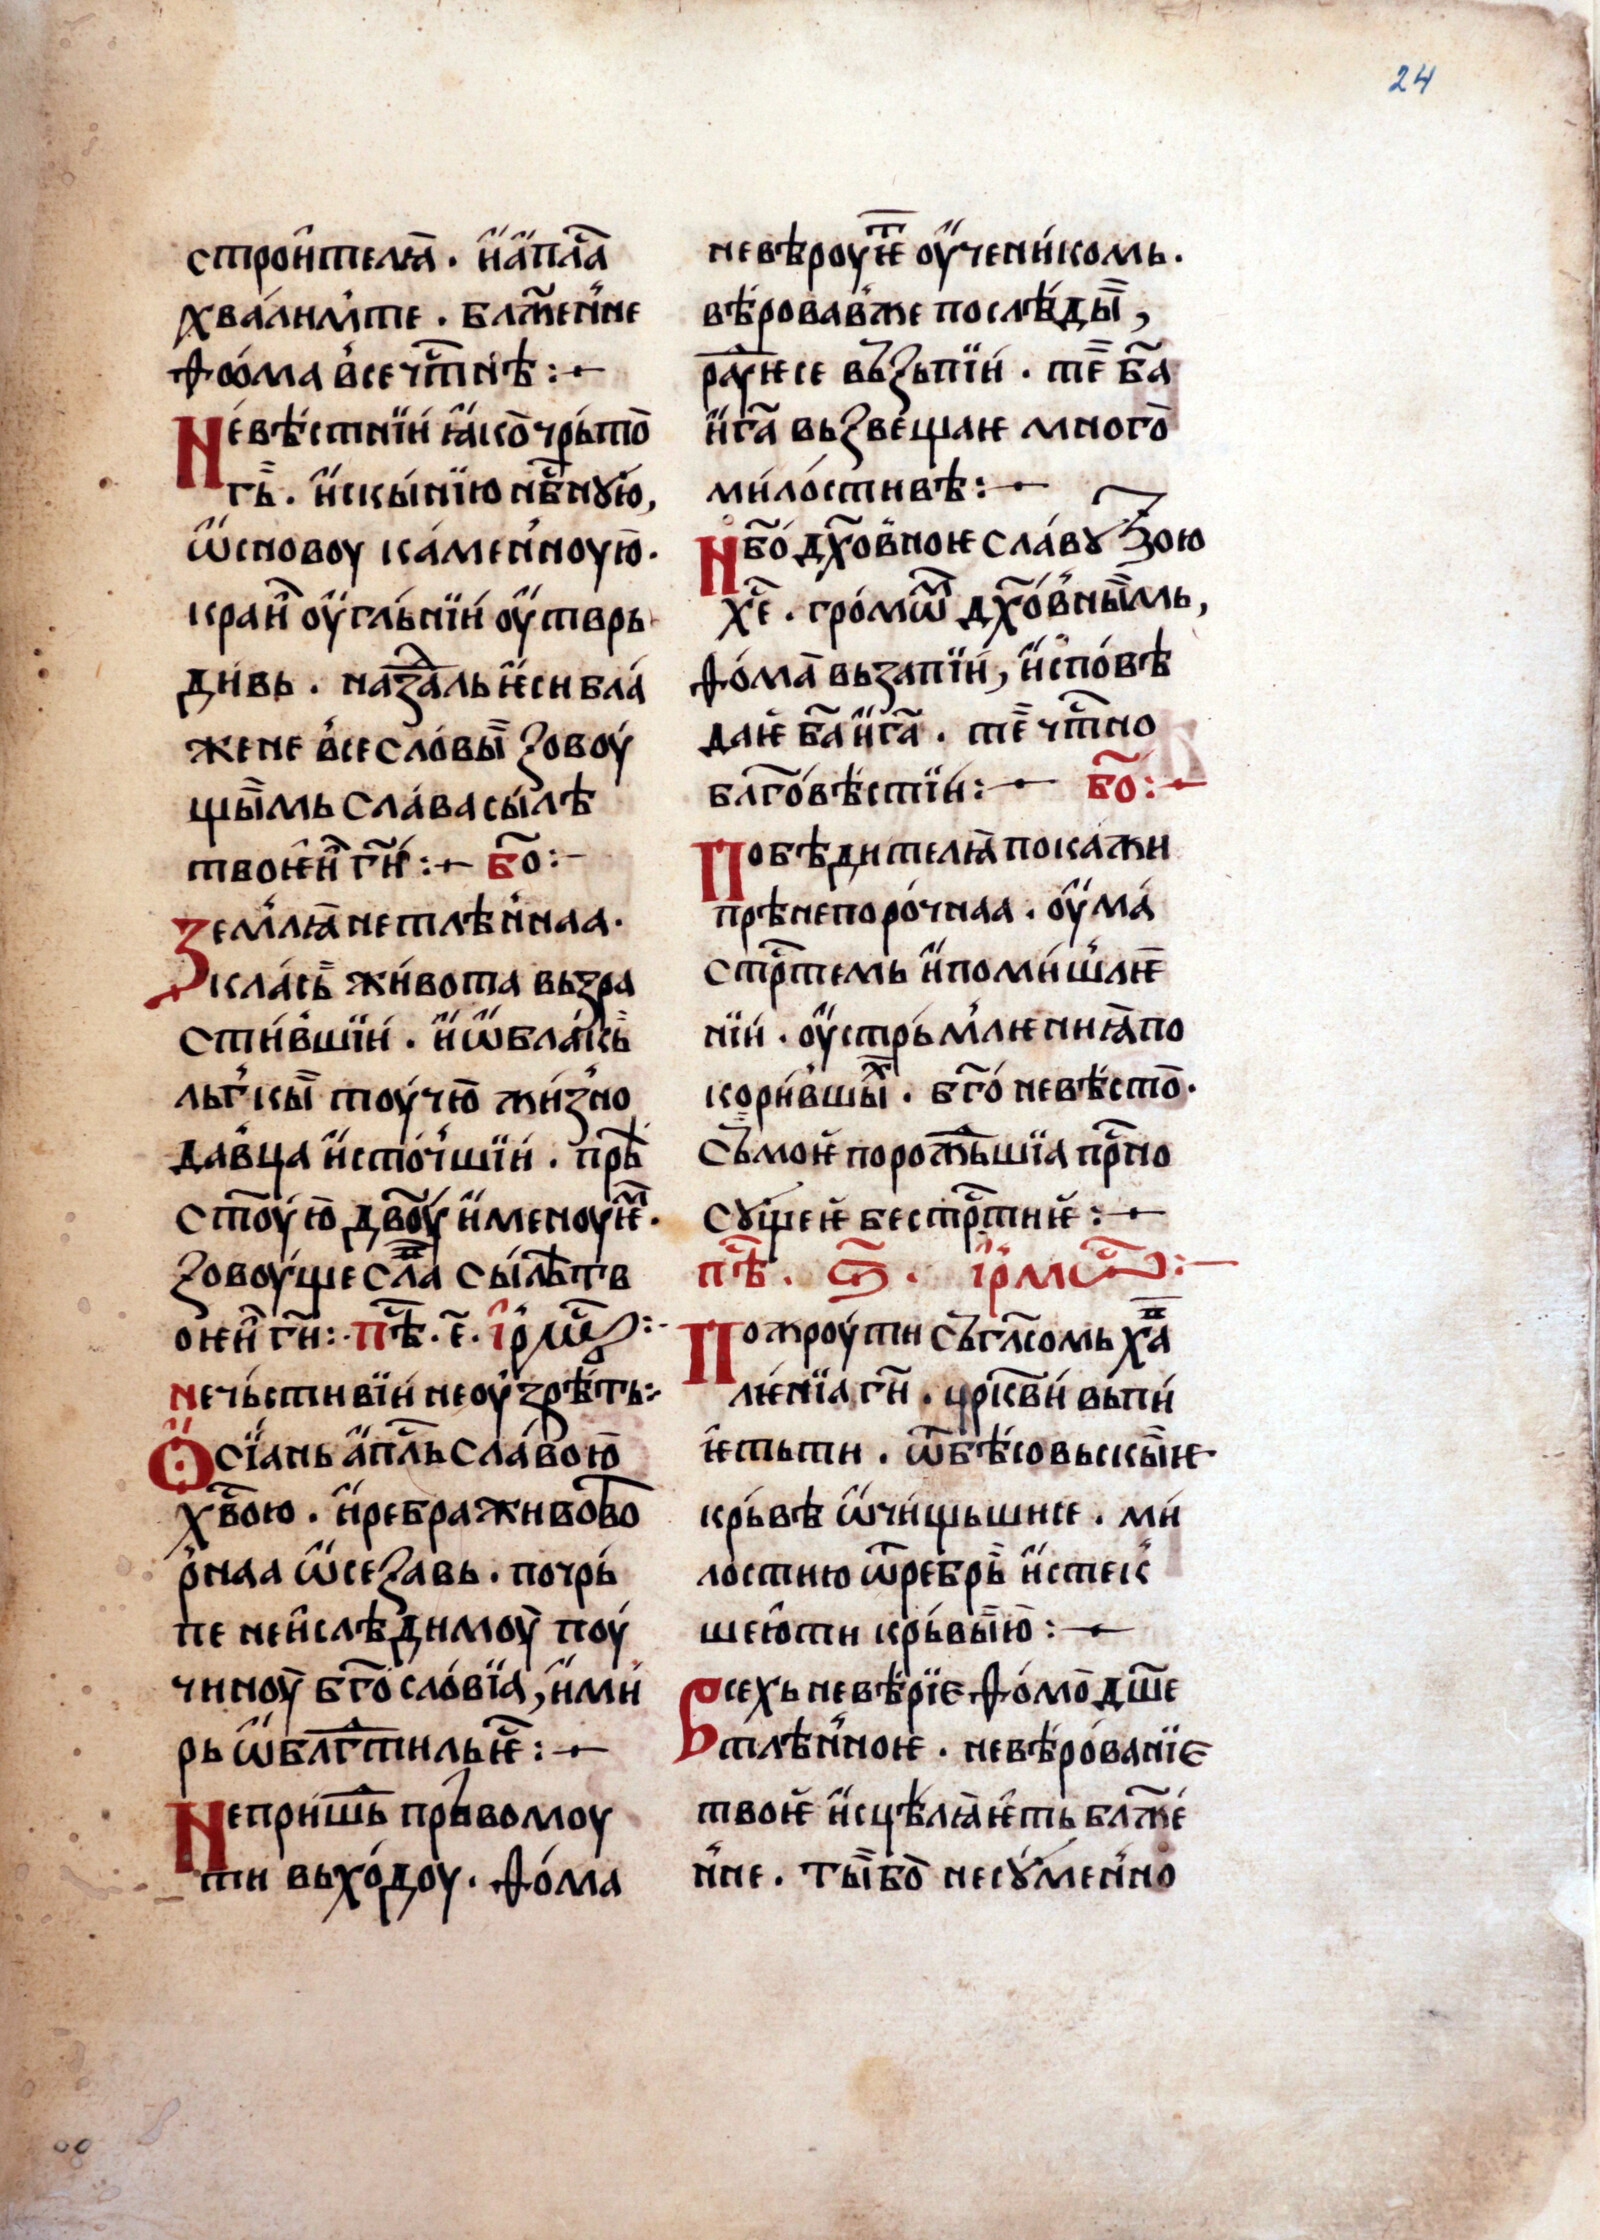 24
строи́телꙗ̀ . и҆ а҆пл҃а
хва́лимь те . бл҃же́нне
ѳѡ́ма все чт҃нѣ :⁓
Неве́стнїи ꙗ҆ко̀ чрьто́
гь . и҆ скы́нїю нб҃ную ,
ѿ сновоу ка́меннѹю̀ .
краи̂ ѹ҆гльнїи ѹ҆тврь
дивь . наꙁаль ѥси бла́
жене все сло́вы̏ ꙁовоу́
щы̏мь сла́ва си́лѣ
твоѥи̂ гн҃и :⁓ бо҃ :⁓
Земⷧ҇лꙗ̀ нетлѣ́ннаа .
кла́сь живота въꙁра
сти́вшїи . и҆ ѡ҆бла́кь
льѓкы̏ тоу́чю̀ жи́ꙁно
да́вца и҆сто́чшїи . прѣ
ст҃оую̀ дв҃ою и҆меноуѥⷨ .
ꙁовоу́ще сла̀ си́лѣ тв
оѥи̂ гн҃и :· пѣ҃ . е҃ . і҆рмⷪ҇ :⁓
нечьстивїи не ѹ҆ꙁрѣ́ть :⁓
Ѻ҆сїань а҆пл҃ь сла́вою̀
хв҃ою . и҆ ребра живово
рнаа ѡ҆сеꙁавь . почрь
пе неи҆слѣдимоу̀ поу́
чиноу̀ бг҃осло́вїа , и҆ ми́
рь ѡ҆блг҃тиль ѥ҃ :⁓
Не при́шь прьвомоу
ти въхо́доу . ѳо́ма
невѣроуѥⷮ ѹ҆чени́комь .
вѣ́ровавже послѣ́ды̏ ,
раꙋ҆ѥ се вьꙁьпїи . те҃ ба҃
и҆ га҃ вьꙁвещаѥ много̀
ми́лостивѣ :⁓
Нб҃о дх҃овноѥ сла́вꙋ ꙁою
хе҃ . гро́мѡⷨ дх҃о́вны̏мь ,
ѳо́ма̀ вьꙁапїи , и҆спо́вѣ
даѥ̀ ба҃ и҆ га҃ . те҃ чт҃но
блг҃овѣ́стїи :⁓ бо҃ :⁓
Побѣдителꙗ̀ покажи
прѣнепоро́чнаа . ѹ҆ма́
стрⷭ҇темь и҆ поми́шлѥ
нїи . ѹ҆стрьмлѥниꙗ̀ по
кори́вшы̏ⷯ . бг҃о неве́сто̀ .
Съмоѥ̀ порожьшїа прⷭ҇но
сꙋще́ѥ бестрⷭ҇тниѥ̀ :⁓
пѣ҃ . ѕ҃ . і҆рмⷪ҇ :⁓
Пожроу́ти съ гл҃сомь хⷡа
лѥ́нїа гн҃и . црк҃ви вьпи́
ѥ҆тьти . ѿ бѣ́совьскы̏ѥ
крьвѣ ѡ҆чи́щьши се . ми́
лостию ѿ ребрь и҆стеќ
шею̀ ти крьвы̏ю̀ :⁓
Всехь невѣ́рїе ѳо́мо̀ дш҃е
тлѣ́нноѥ . невѣ́рованїе
твоѥ̀ и҆сцѣлꙗ̀ѥть бл҃же́
нне . ты̏бо̀ несꙋме́нно